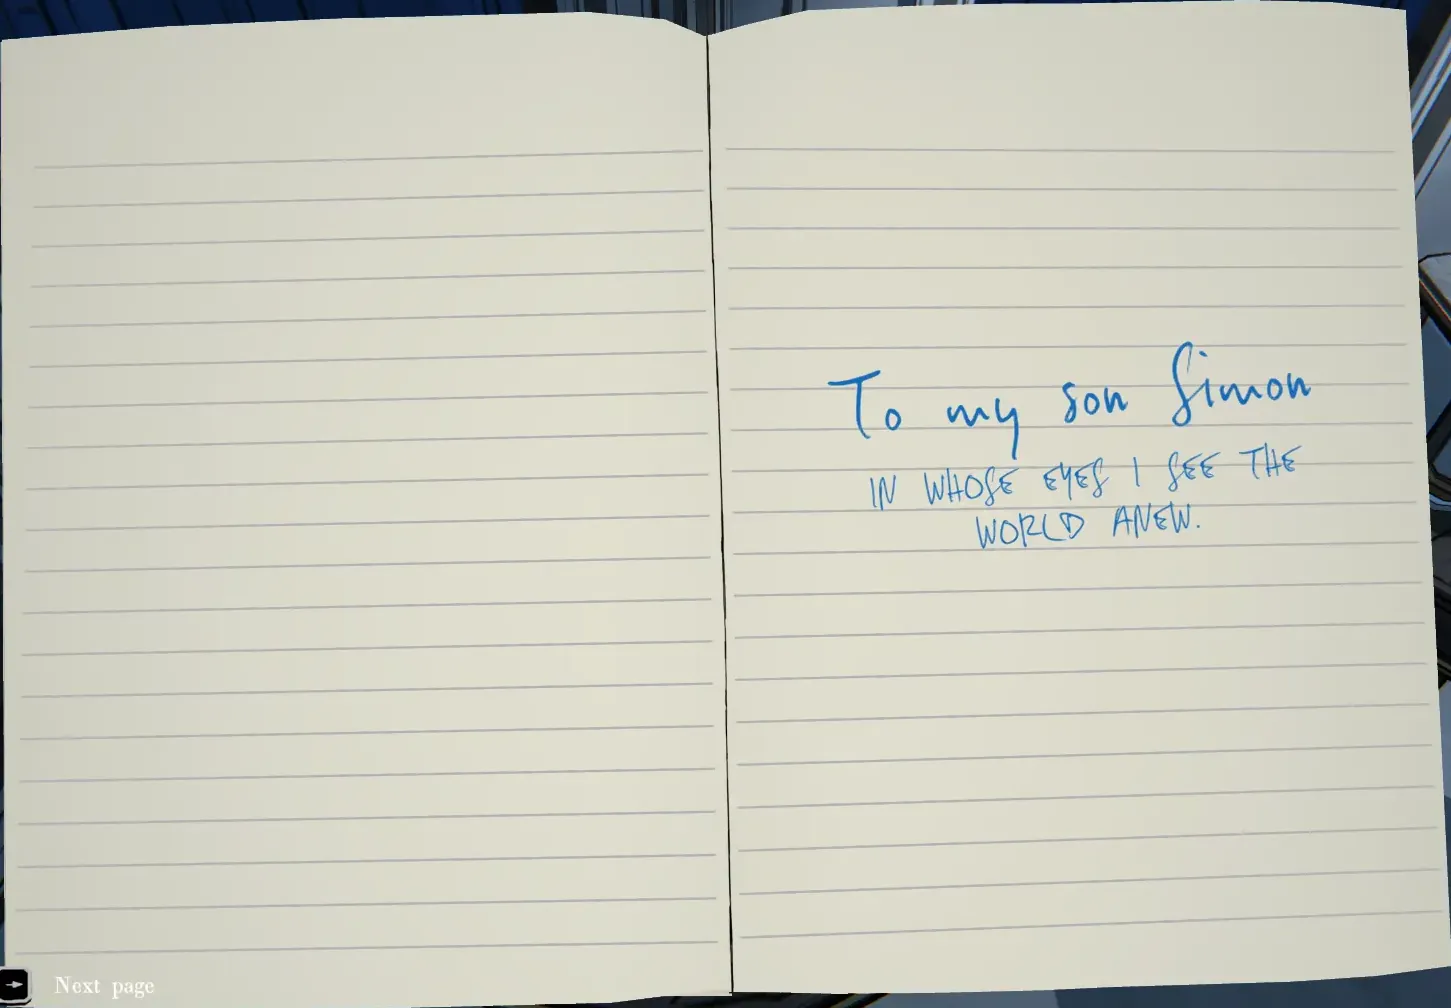 To my son Simon
IN WHOSE EYES I SEE THE
WORLD ANEW.
Next page